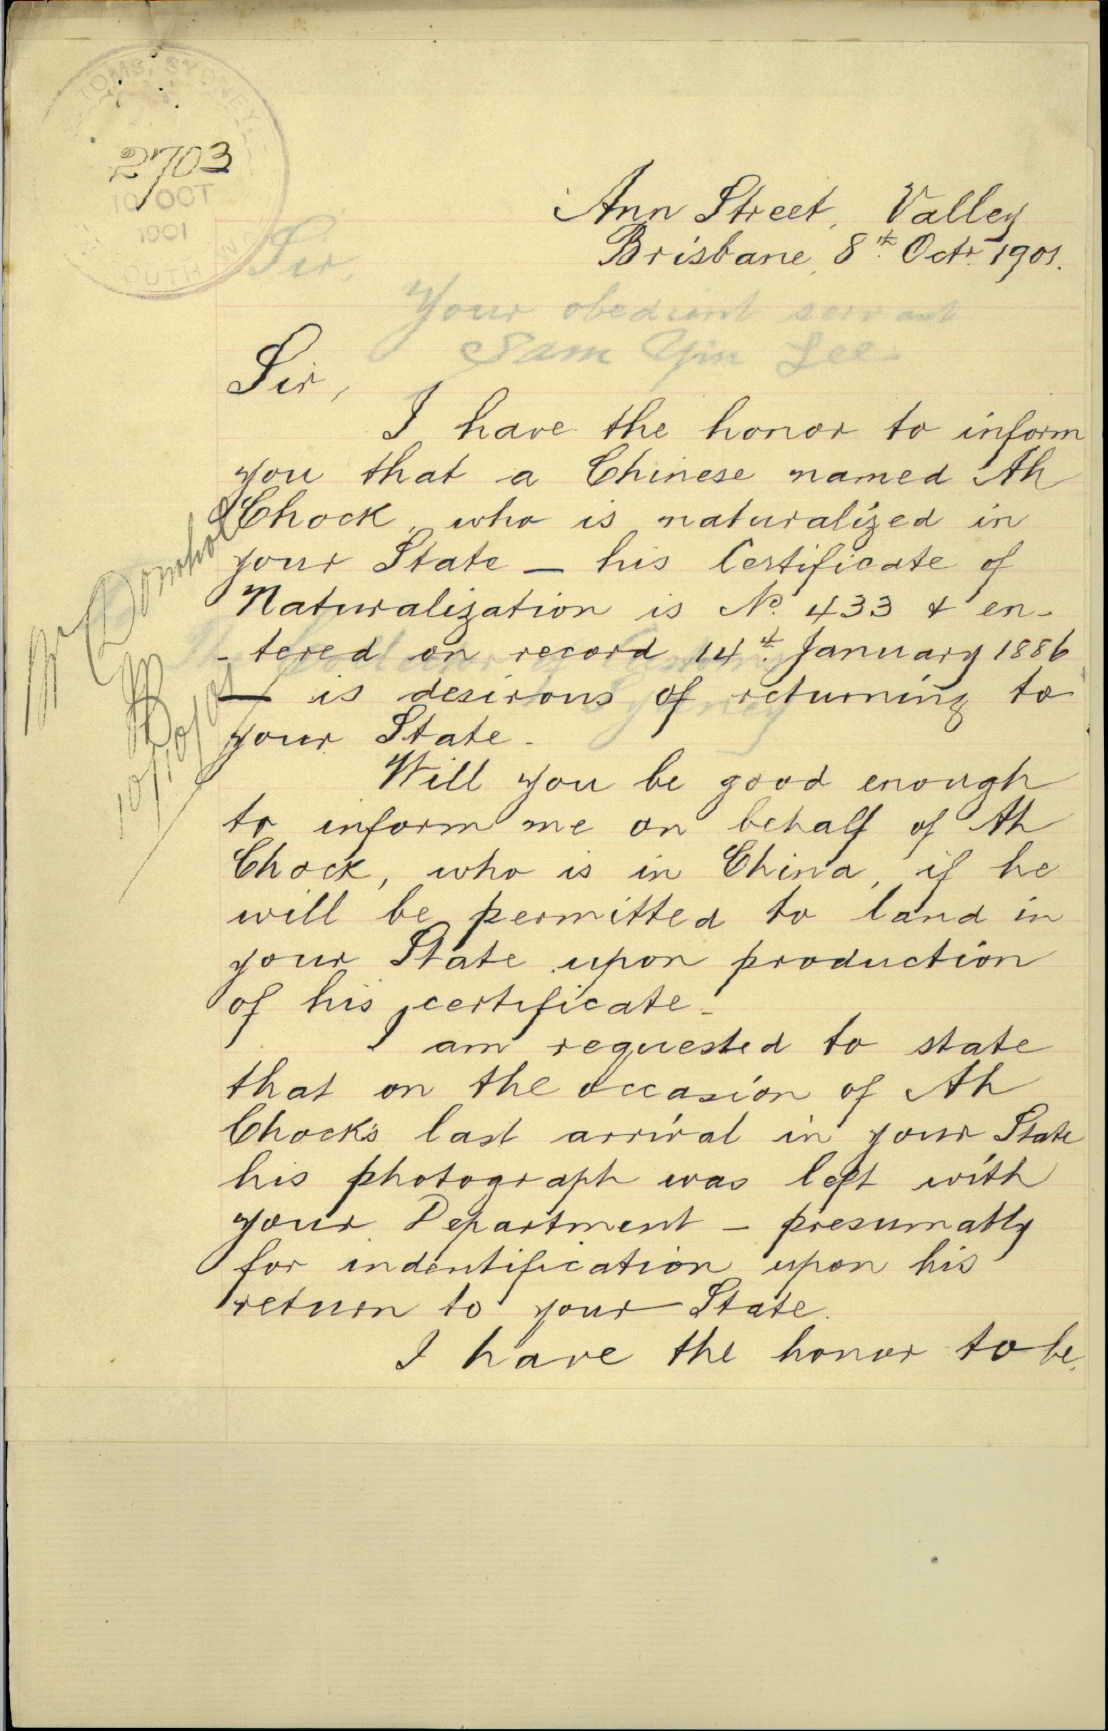 CUSTOMS, SYDNEY
2703
10 OCT
1901
SOUTH
Ann Street, Valley
Brisbane, 8th. Octr. 1901.
Sir,
Your obedient servant
Sam Yin Lee
Sir,
I have the honor to inform
you that a Chinese named Ah
Chock, who is naturalized in
your State — his Certificate of
Naturalization is No. 433 & en-
- tered on record 14th. January 1886
— is desirous of returning to
your State -
Will you be good enough
to inform me on behalf of Ah
Chock, who is in China, if he
will be permitted to land in
your State upon production
of his certificate -
I am requested to state
that on the occasion of Ah
Chock's last arrival in your State
his photograph was left with
your Department - presumably
for indentification upon his
return to your State.
I have the honor to be,
Mr Donohoe
10/10/01
Sydney